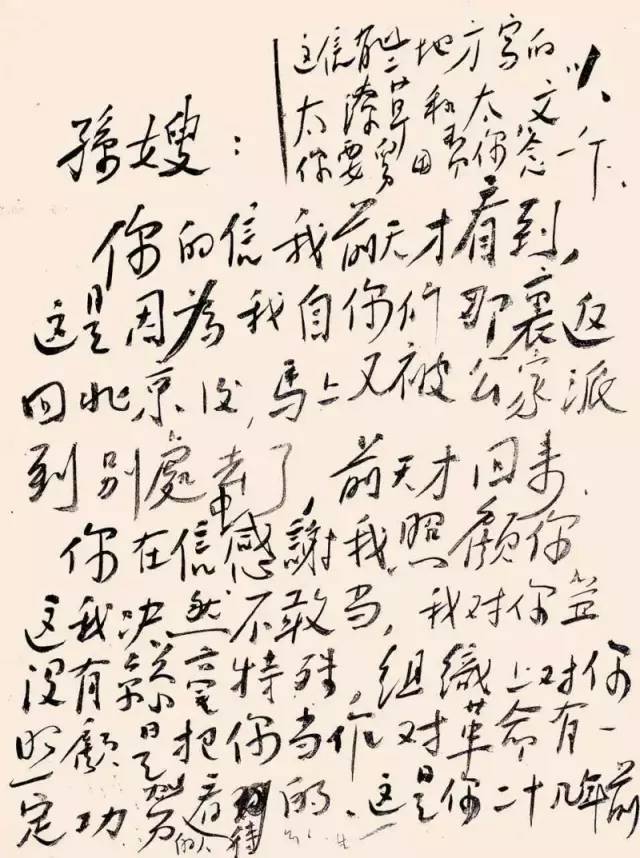 这信有些地方写的
太潦草和太文
你要 你念一下.
孫嫂：
你的信我前天才看到,
这是因為我自你们那裏返
回北京后,馬上又被公家派
到别處去了,前天才回来.
你在信中感謝我照顧你
这我决然不敢当,我对你並
没有 特殊,组織上对你
照顧是把你当作对革命有一
定功劳的人看待的、这是你二十几年前